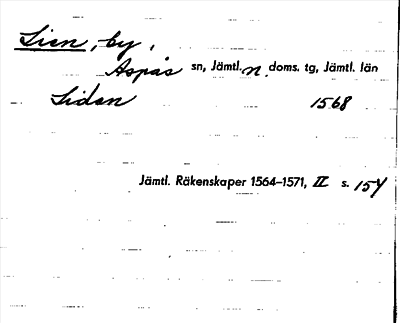 Lien, by,
Aspås sn, Jämtl. n. doms. tg, Jämtl. län
Liden 1568
Jämtl. Räkenskaper 1564–1571, II s. 154